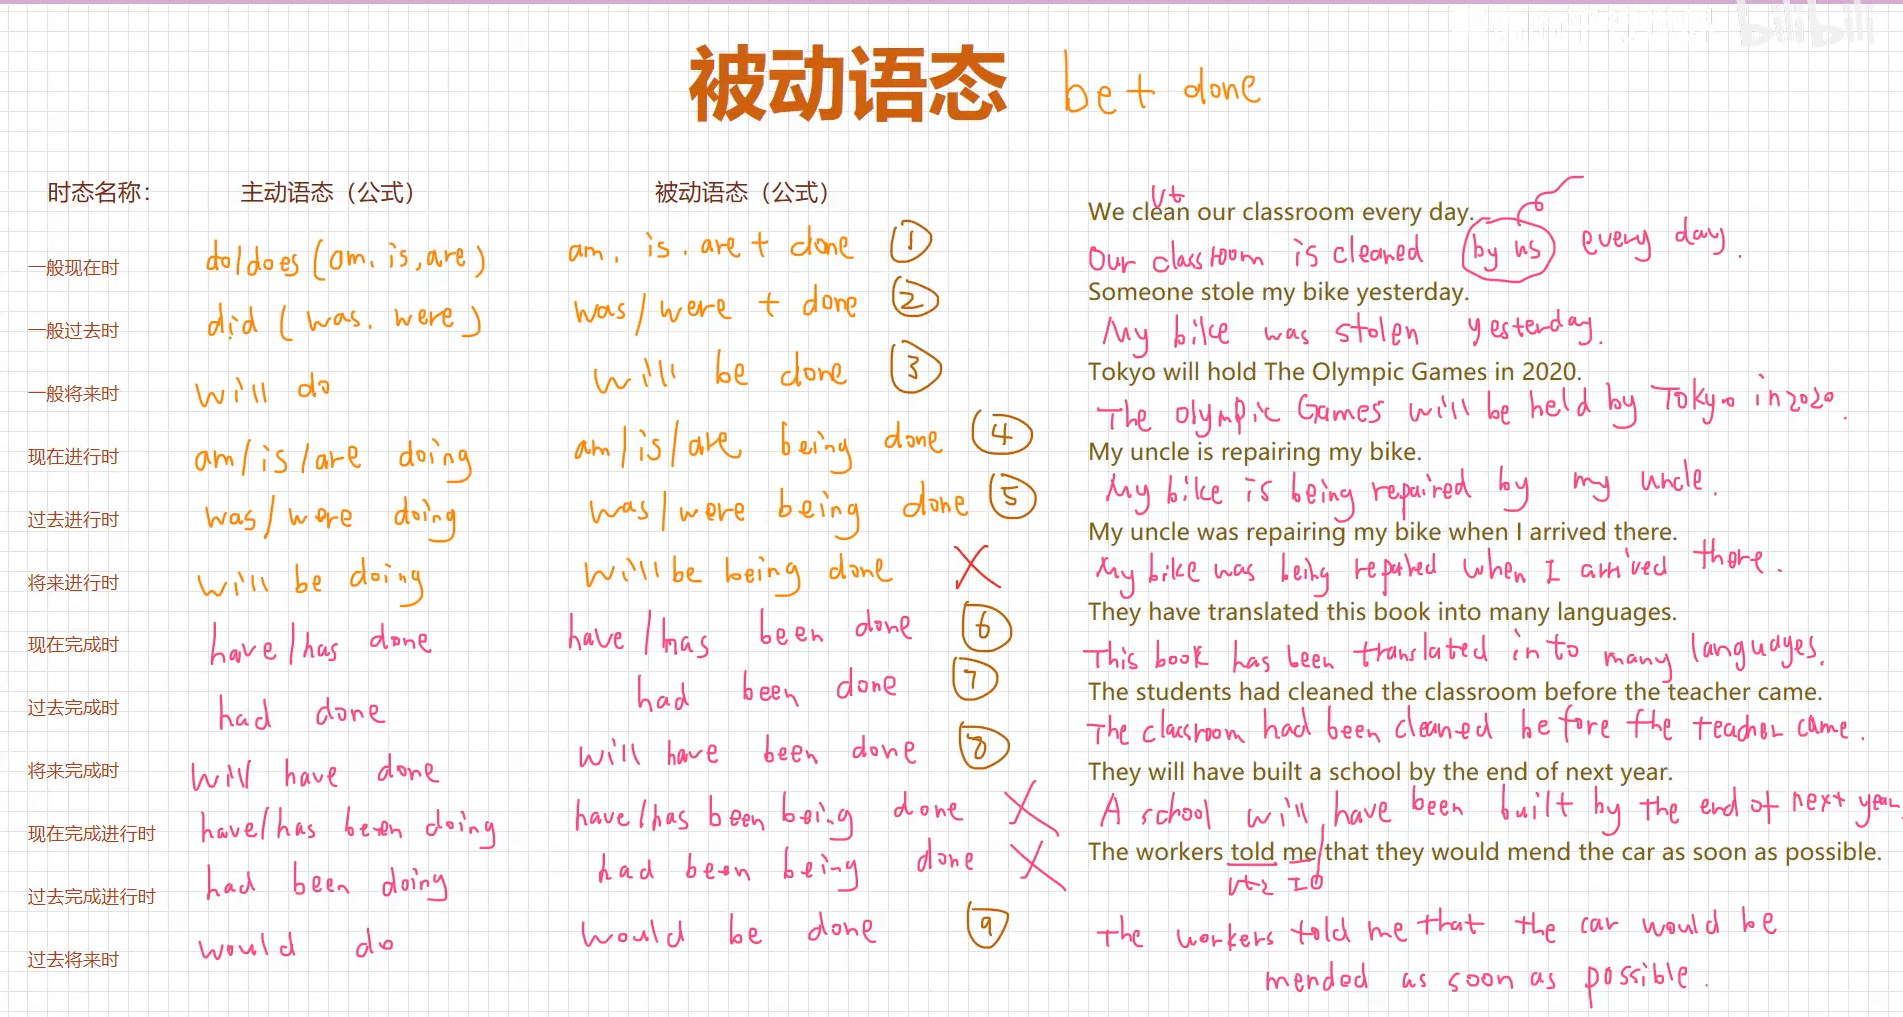 bilibili
被动语态 be + done
时态名称: 主动语态（公式） 被动语态（公式）
一般现在时 do/does (am, is, are) am. is. are + done ①
一般过去时 did (was. were) was/were + done ②
一般将来时 will do will be done ③
现在进行时 am/is/are doing am/is/are being done ④
过去进行时 was/were doing was/were being done ⑤
将来进行时 will be doing will be being done X
现在完成时 have/has done have/has been done ⑥
过去完成时 had done had been done ⑦
将来完成时 will have done will have been done ⑧
现在完成进行时 have/has been doing have/has been being done X
过去完成进行时 had been doing had been being done X
过去将来时 would do would be done ⑨
vt
We clean our classroom every day.
Our classroom is cleaned by us every day.
Someone stole my bike yesterday.
My bike was stolen yesterday.
Tokyo will hold The Olympic Games in 2020.
The Olympic Games will be held by Tokyo in 2020.
My uncle is repairing my bike.
My bike is being repaired by my uncle.
My uncle was repairing my bike when I arrived there.
My bike was being repaired when I arrived there.
They have translated this book into many languages.
This book has been translated into many languages.
The students had cleaned the classroom before the teacher came.
The classroom had been cleaned before the teacher came.
They will have built a school by the end of next year.
A school will have been built by the end of next year.
The workers told me that they would mend the car as soon as possible.
vt2 IO
The workers told me that the car would be
mended as soon as possible.